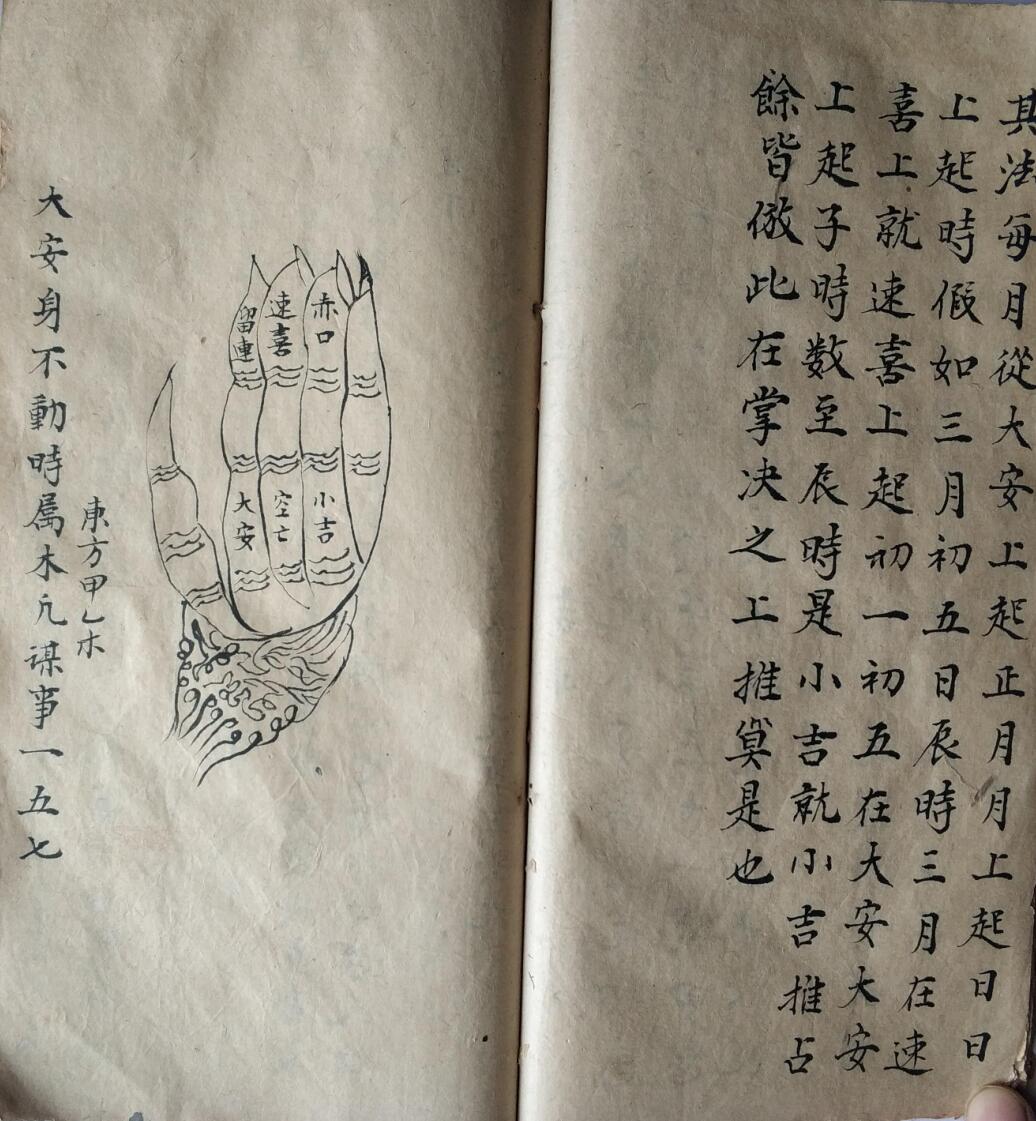 其法每月從大安上起正月月上起日日
上起時假如三月初五日辰時三月在速
喜上就速喜上起初一初五在大安大安
上起子時数至辰時是小吉就小吉推占
餘皆倣此在掌决之上推算是也
赤口
速喜
留連
小吉
空亡
大安
東方甲乙木
大安身不動時属木凢謀事一五七